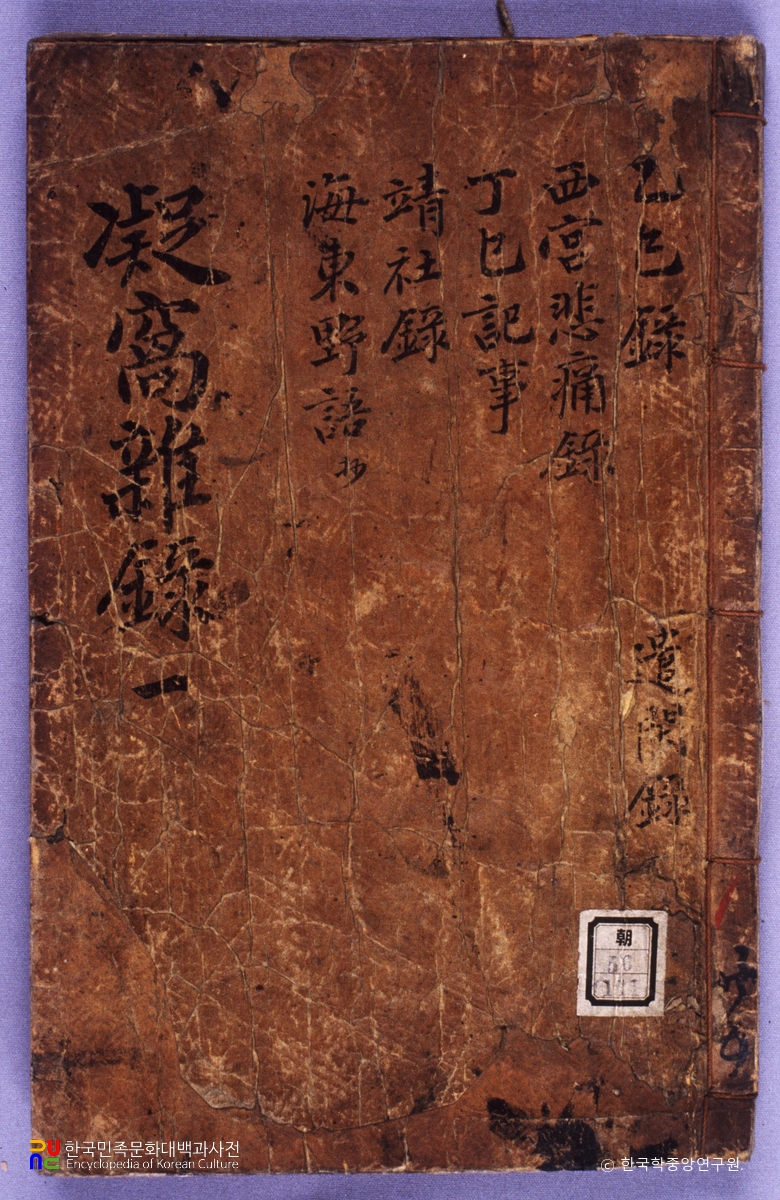 乙巳錄 遺閑錄
西宮悲痛錄
丁巳記事
靖社錄
海東野語抄
凝窩雜錄 一
朝
56
한국민족문화대백과사전
Encyclopedia of Korean Culture
© 한국학중앙연구원